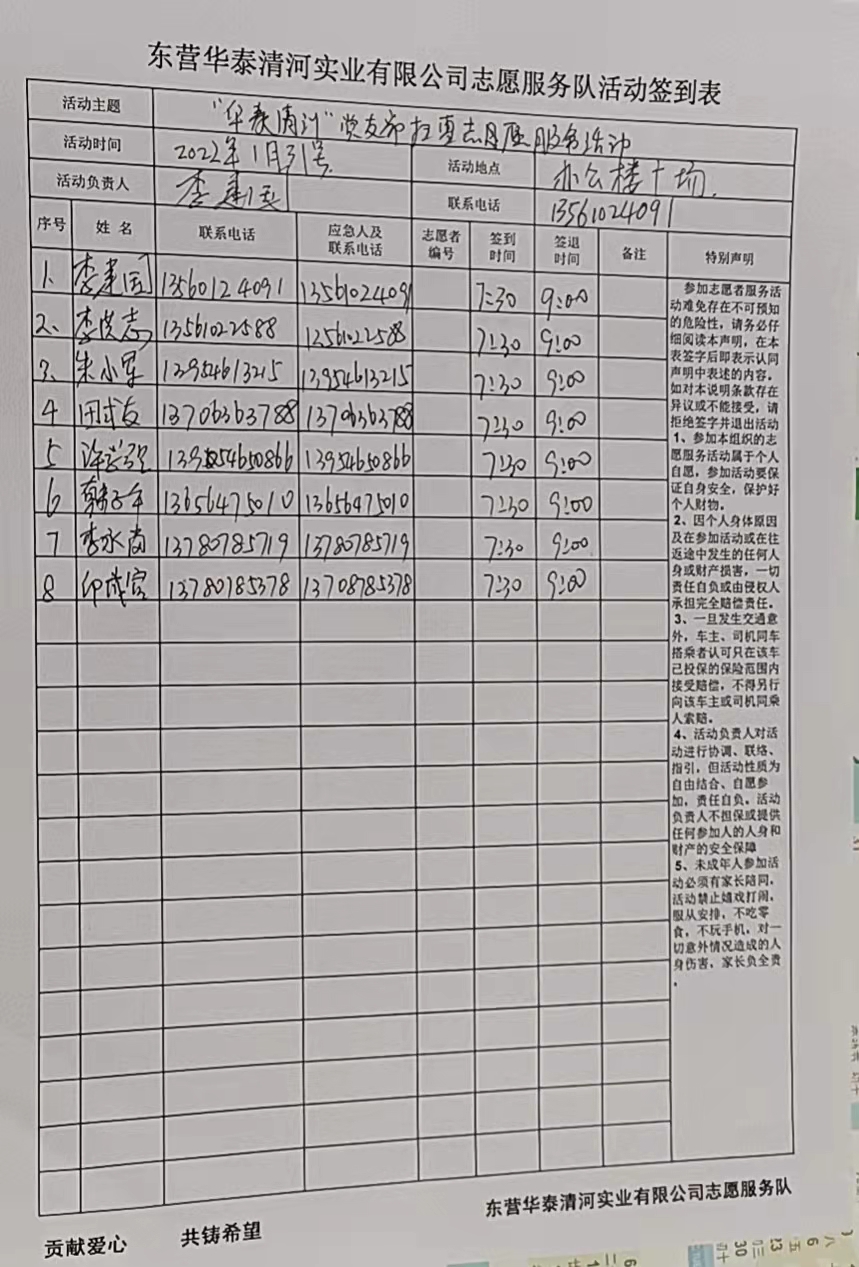 东营华泰清河实业有限公司志愿服务队活动签到表
活动主题 "华泰清河"党支部扫雪志愿服务活动
活动时间 2022年1月31号 活动地点 办公楼广场.
活动负责人 李建国 联系电话 13561024091
序号 姓名 联系电话 应急人及联系电话 志愿者编号 签到时间 签退时间 备注 特别声明
1、 李建国 13560124091 13561024091 7:30 9:00
2、 李洪志 13561022588 13561022588 7:30 9:00
3、 朱小军 13954613215 13954613215 7:30 9:00
4 田 友 13706363788 13706363788 7:30 9:00
5 许 强 13954650866 13954650866 7:30 9:00
6 韩子年 13656475010 13656475010 7:30 9:00
7 李永尚 13780785719 13780785719 7:30 9:00
8 印 官 13780785378 13708785378 7:30 9:00
参加志愿者服务活
动难免存在不可预知
的危险性，请务必仔
细阅读本声明，在本
表签字后即表示认同
声明中表述的内容。
如对本说明条款存在
异议或不能接受，请
拒绝签字并退出活动
1、参加本组织的志
愿服务活动属于个人
自愿，参加活动要保
证自身安全，保护好
个人财物。
2、因个人身体原因
及在参加活动或在往
返途中发生的任何人
身或财产损害，一切
责任自负或由侵权人
承担完全赔偿责任。
3、一旦发生交通意
外，车主、司机同车
搭乘者认可只在该车
已投保的保险范围内
接受赔偿，不得另行
向该车主或司机同乘
人索赔。
4、活动负责人对活
动进行协调、联络、
指引，但活动性质为
自由结合、自愿参
加，责任自负。活动
负责人不担保或提供
任何参加人的人身和
财产的安全保障
5、未成年人参加活
动必须有家长陪同，
活动禁止嬉戏打闹，
服从安排，不吃零
食，不玩手机，对一
切意外情况造成的人
身伤害，家长负全责
。
东营华泰清河实业有限公司志愿服务队
贡献爱心 共铸希望